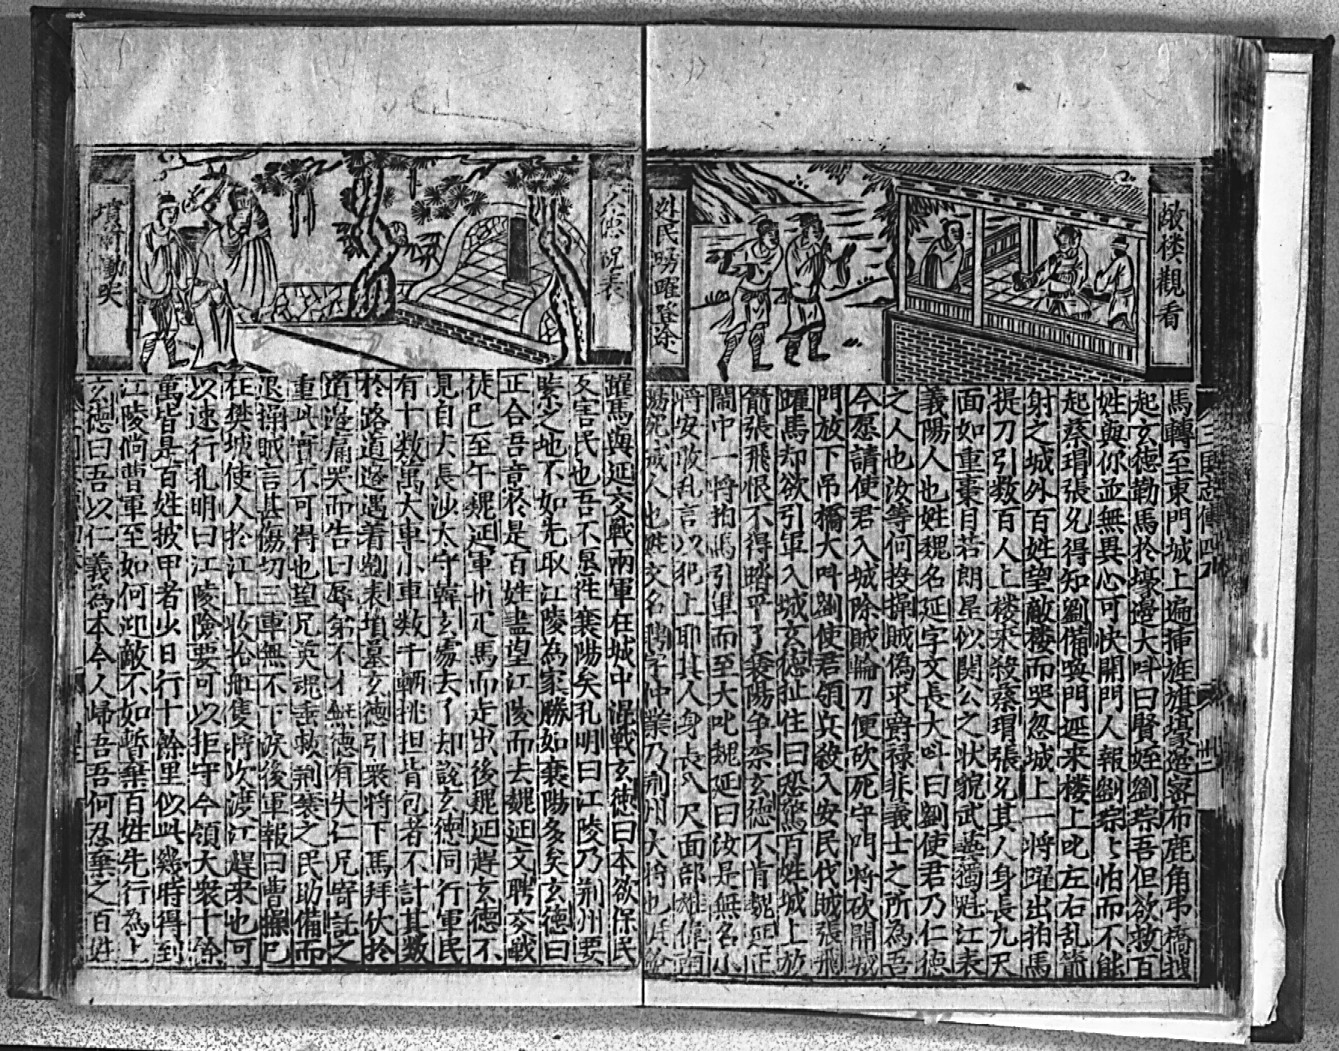 敵樓觀看
外民踴躍登途
馬轉至東門城上遍挿旌旗壕邉宻布鹿角弔橋拽
起玄德勒馬於壕邉大呌曰賢姪劉琮吾但欲救百
姓與你並無異心可快開門人報劉琮琮怕而不能
起蔡瑁張允得知劉備喚門逕来楼上叱左右乱箭
射之城外百姓望敵楼而哭忽城上一将躍出拍馬
提刀引数百人上楼来殺蔡瑁張允其人身長九尺
面如重棗目若朗星似関公之状貌武藝獨魁江表
義陽人也姓魏名延字文長大呌曰劉使君乃仁德
之人也汝等何投操賊偽求爵禄非義士之所為吾
今愿請使君入城除賊輪刀便砍死守門将砍開城
門放下吊橋大呌劉使君領兵殺入安民伐賊張飛
躍馬却欲引軍入城玄德扯住曰恐驚百姓城上放
箭張飛恨不得踏平了襄陽争奈玄德不肯魏延正
鬧中一将拍馬引軍而至大叱魏延曰汝是無名小
将安敢乱言以犯上耶其人身長八尺面部雄偉
人也姓文名聘字仲業乃荆州大将也
三國志傳四
劉表
墳
哭
躍馬與延交戰兩軍在城中混戰玄德曰本欲保民
反害民也吾不愿往襄陽矣孔明曰江陵乃荆州要
緊之地不如先取江陵為家勝如襄陽多矣玄德曰
正合吾意於是百姓盡望江陵而去魏延文聘交戰
從巳至午魏延軍折疋馬而走出後魏延趕玄德不
見自去長沙太守韓玄處去了却說玄德同行軍民
有十数萬大車小車数千輛挑担背包者不計其数
於路道邉遇着劉表墳墓玄德引衆将下馬拜伏於
道邉痛哭而告曰辱弟不才無德有失仁兄寄託之
重此實不可得也望兄英魂垂救荆襄之民助備而
退操賊言甚傷切三軍無不下淚後軍報曰曹操已
在樊城使人於江上收拾船隻将次渡江趕来也可
以速行孔明曰江陵險要可以拒守今領大衆十餘
萬皆是百姓披甲者少日行十餘里似此幾時得到
江陵倘曹軍至如何迎敵不如暫棄百姓先行為上
玄德曰吾以仁義為本今人歸吾吾何忍棄之百姓